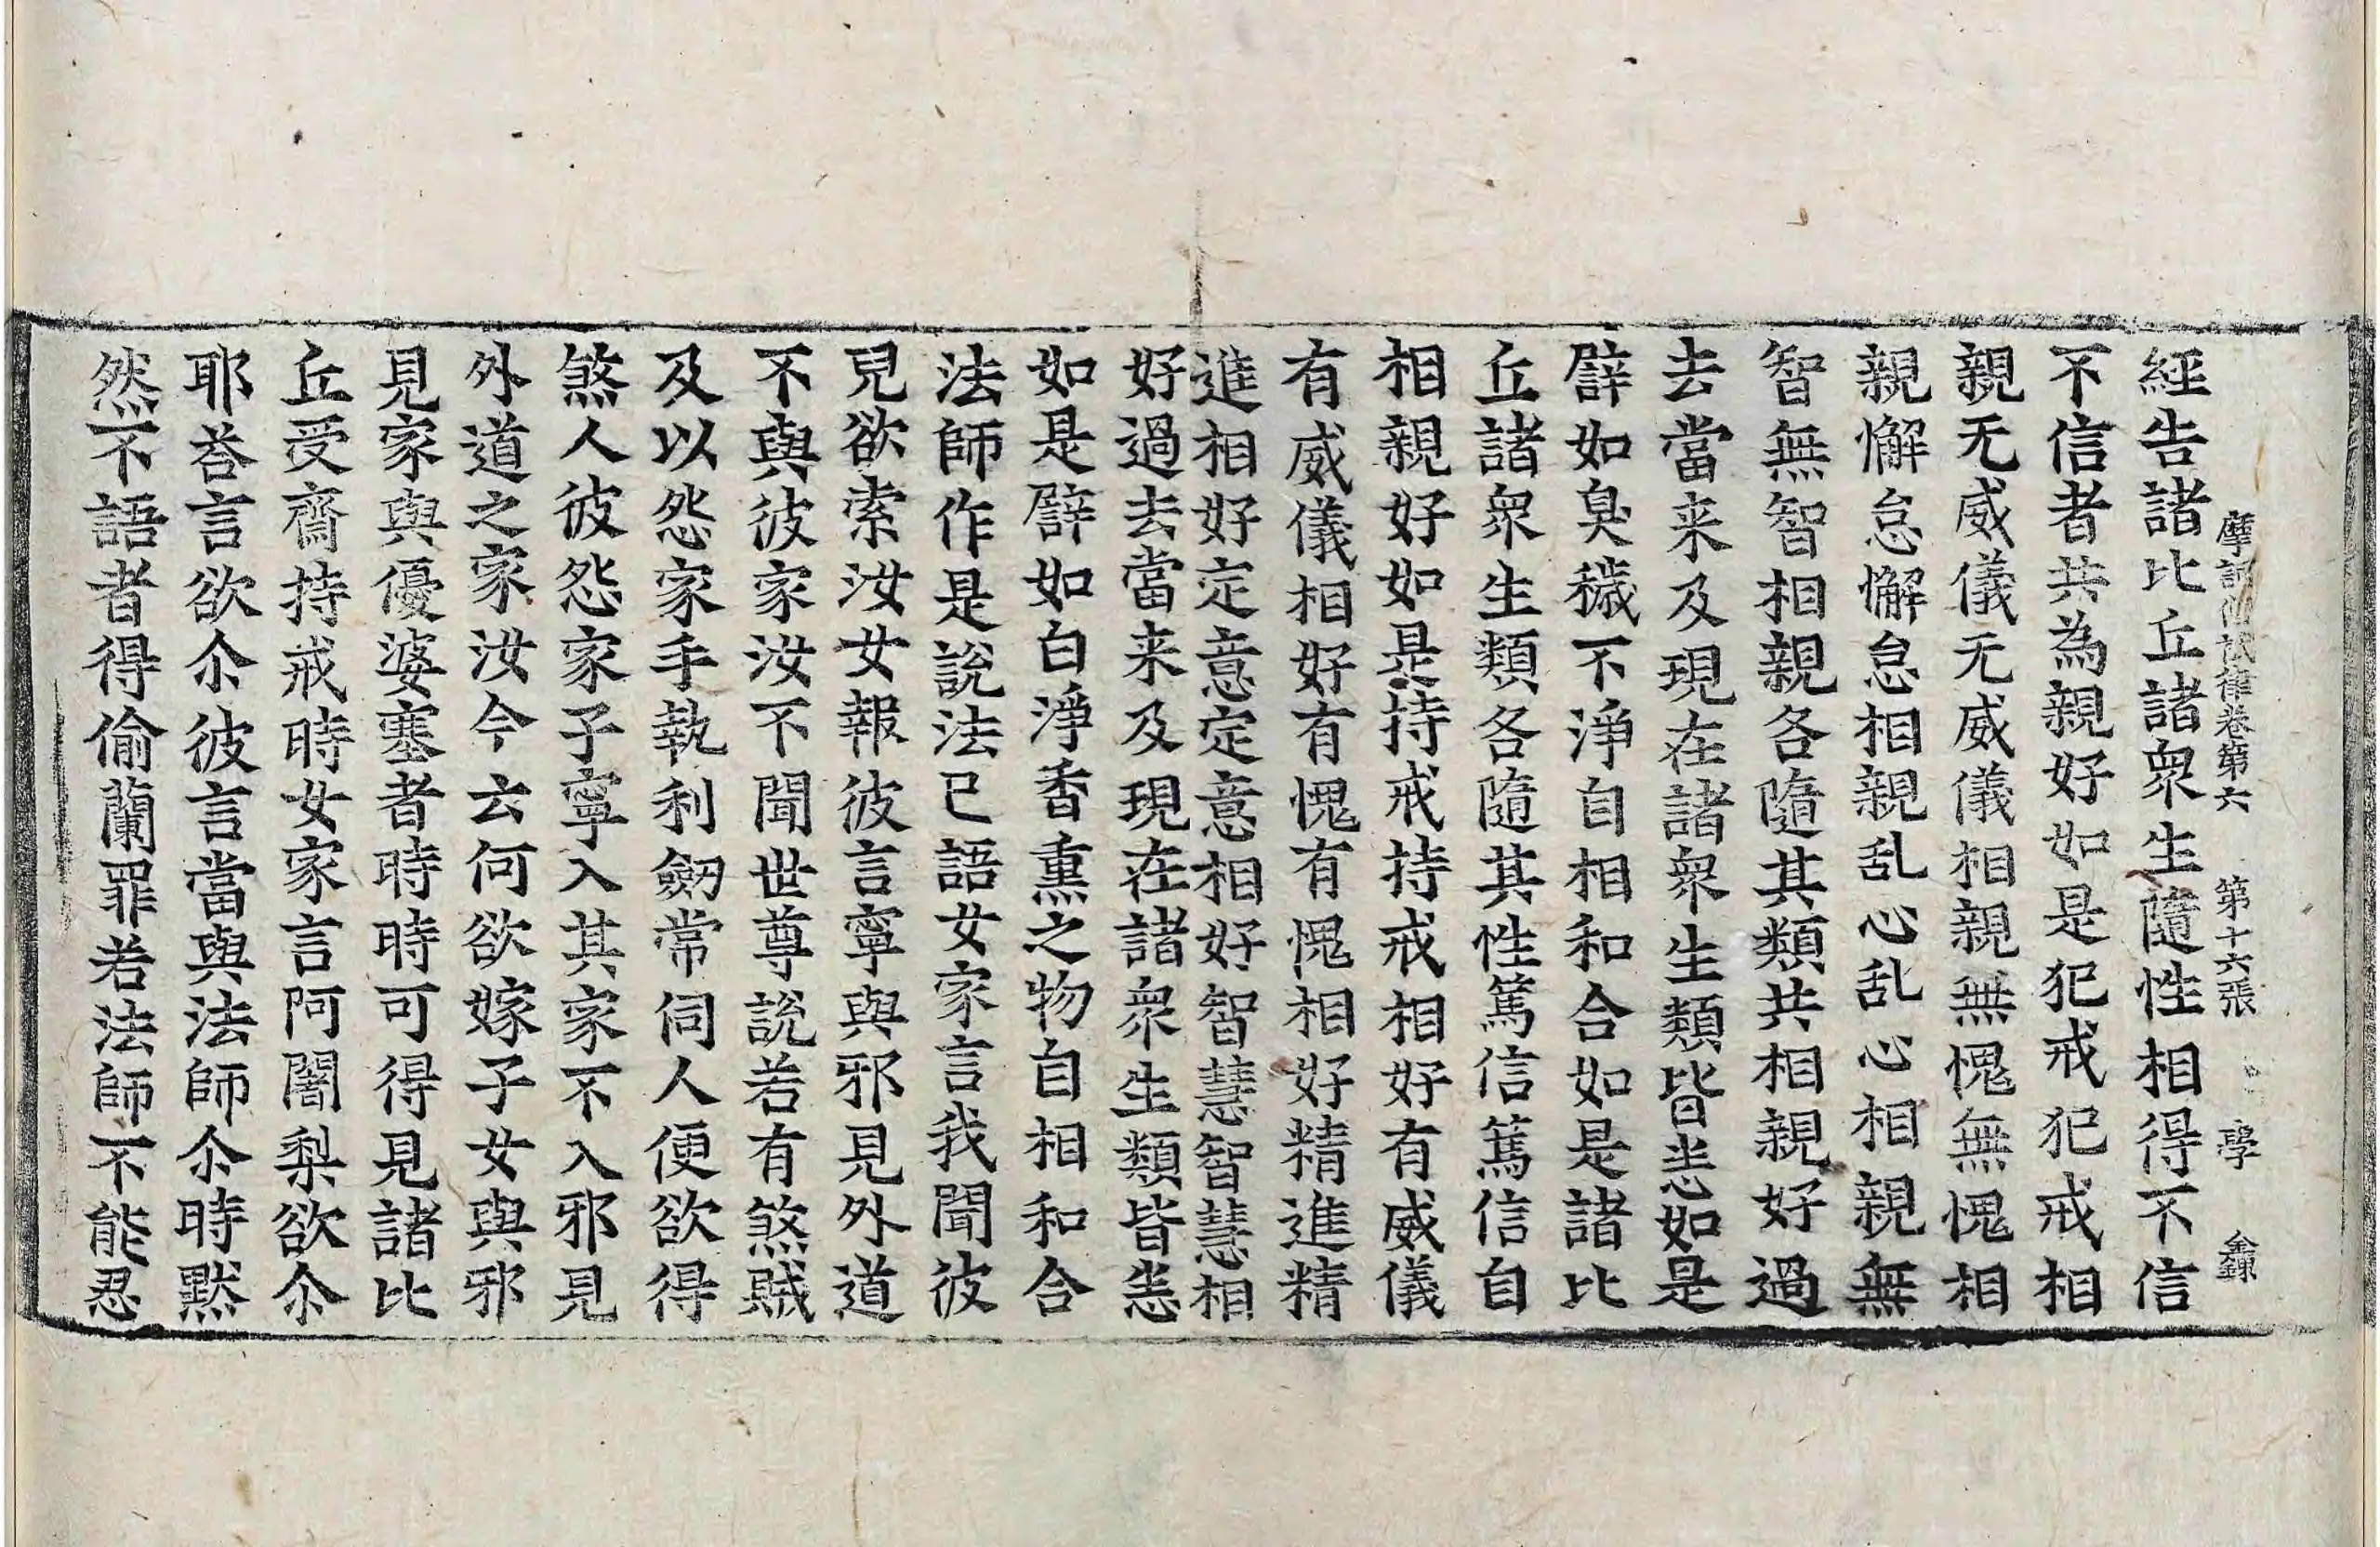 摩訶僧祇律卷第六 第十六張 學 金鍊
經告諸比丘諸衆生隨性相得不信
不信者共為親好如是犯戒犯戒相
親无威儀无威儀相親無愧無愧相
親懈怠懈怠相親乱心乱心相親無
智無智相親各隨其類共相親好過
去當来及現在諸衆生類皆恙如是
辟如臭穢不淨自相和合如是諸比
丘諸衆生類各隨其性篤信篤信自
相親好如是持戒持戒相好有威儀
有威儀相好有愧有愧相好精進精
進相好定意定意相好智慧智慧相
好過去當来及現在諸衆生類皆恙
如是辟如白淨香熏之物自相和合
法師作是說法已語女家言我聞彼
兒欲索汝女報彼言寧與邪見外道
不與彼家汝不聞世尊說若有煞賊
及以怨家手執利劒常伺人便欲得
煞人彼怨家子寧入其家不入邪見
外道之家汝今云何欲嫁子女與邪
見家與優婆塞者時時可得見諸比
丘受齋持戒時女家言阿闍梨欲尒
耶荅言欲尒彼言當與法師尒時黙
然不語者得偷蘭罪若法師不能忍